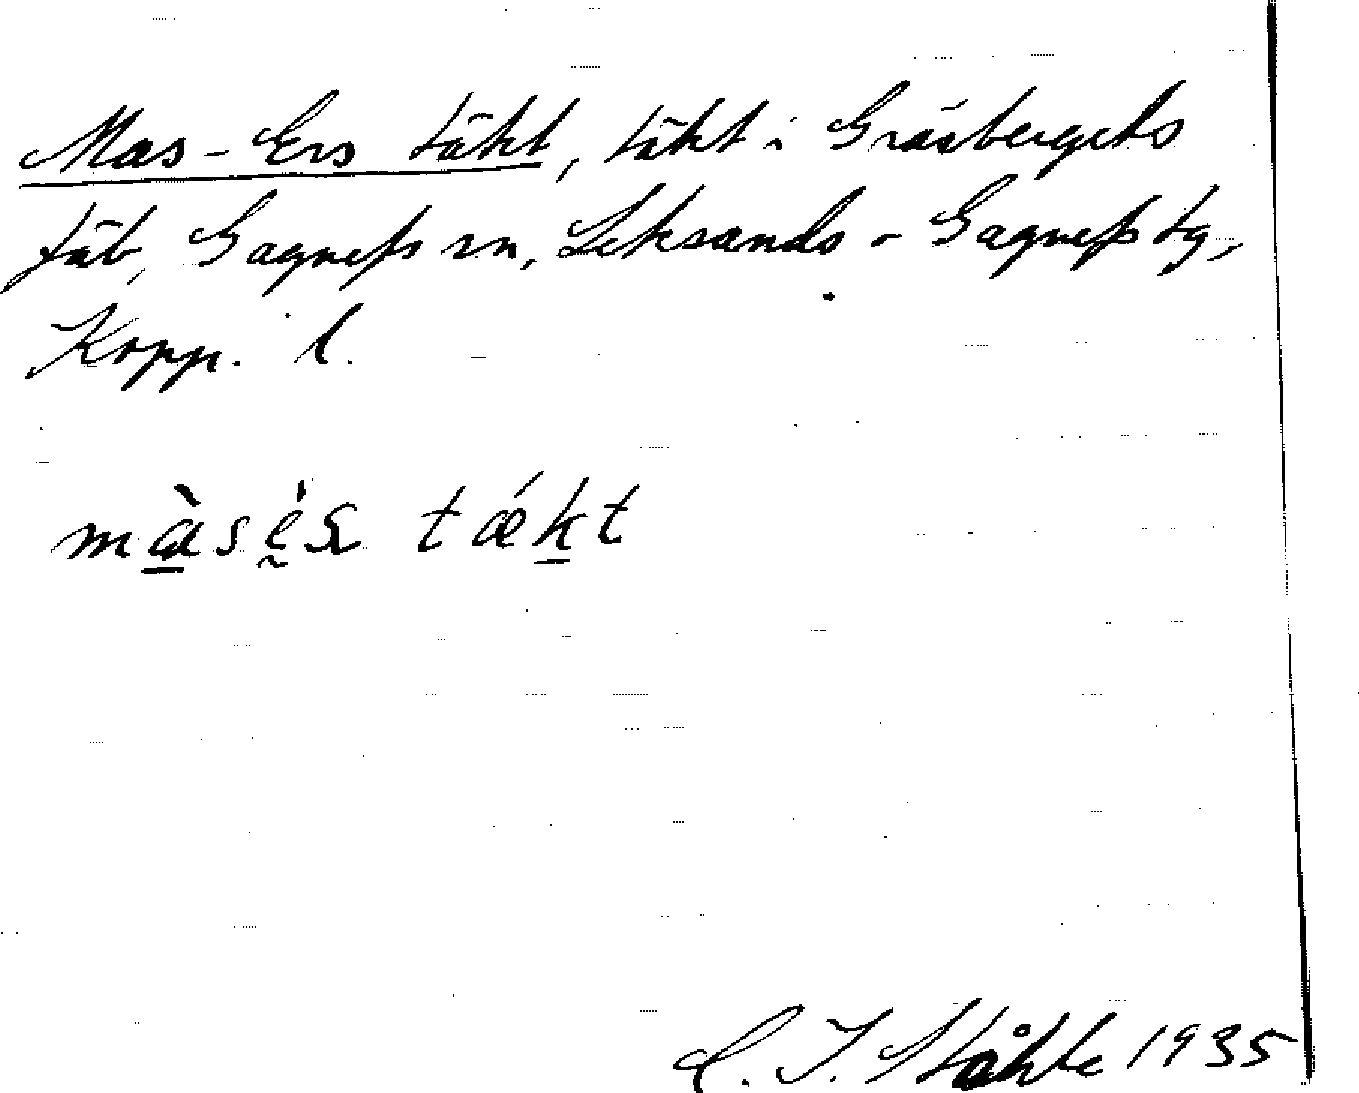 Mas-Ers täkt, täkt i Gräsbergets
fäb, Gagnefs sn, Leksands o Gagnefs tg,
Kopp. l.
tǽkt
C. I. Ståhle 1935